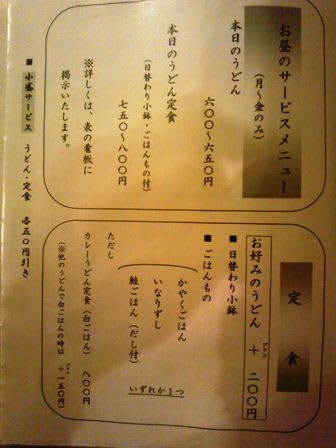 お昼のサービスメニュー
(月〜金のみ)
本日のうどん
六〇〇〜六五〇円
本日のうどん定食
(日替わり小鉢・ごはんもの付)
七五〇〜八〇〇円
※詳しくは、表の看板に
掲示いたします。
定食
お好みのうどん + 二〇〇円
プラス
■ 日替わり小鉢
■ ごはんもの
かやくごはん
いなりずし
鮭ごはん(だし付)
いずれか1つ
ただし
カレーうどん定食(白ごはん) 八〇〇円
(※他のうどんで白ごはんの時は + 一五〇円)
プラス
■ 小盛サービス うどん・定食 各五〇円引き